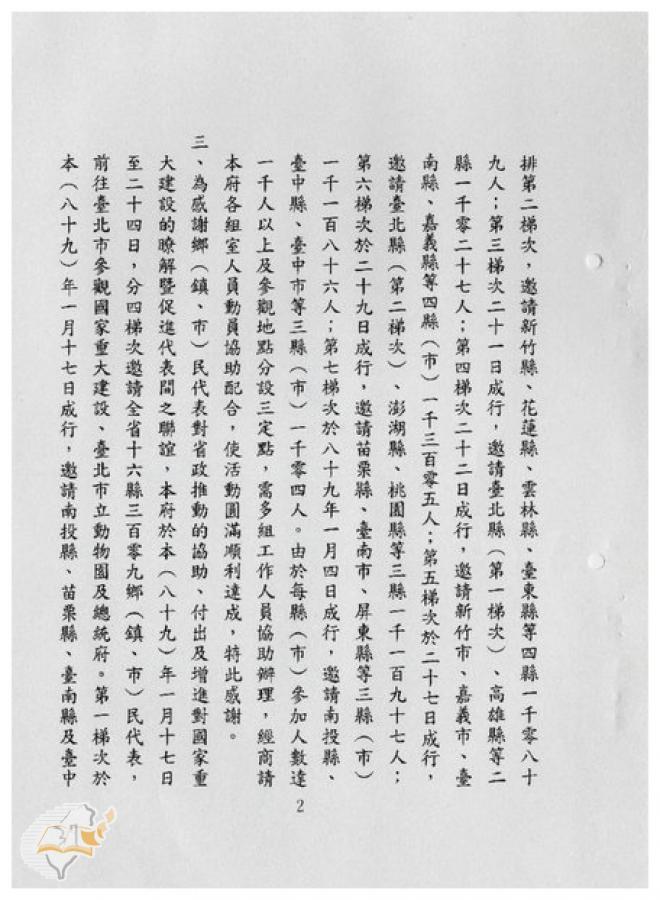 排第二梯次，邀請新竹縣、花蓮縣、雲林縣、臺東縣等四縣一千零八十
九人；第三梯次二十一日成行，邀請臺北縣（第一梯次）、高雄縣等二
縣一千零二十七人；第四梯次二十二日成行，邀請新竹市、嘉義市、臺
南縣、嘉義縣等四縣（市）一千三百零五人；第五梯次於二十七日成行，
邀請臺北縣（第二梯次）、澎湖縣、桃園縣等三縣一千一百九十七人；
第六梯次於二十九日成行，邀請苗栗縣、臺南市、屏東縣等三縣（市）
一千一百八十六人；第七梯次於八十九年一月四日成行，邀請南投縣、
臺中縣、臺中市等三縣（市）一千零四人。由於每縣（市）參加人數達
一千人以上及參觀地點分設三定點，需多組工作人員協助辦理，經商請
本府各組室人員動員協助配合，使活動圓滿順利達成，特此感謝。
三、為感謝鄉（鎮、市）民代表對省政推動的協助、付出及增進對國家重
大建設的瞭解暨促進代表間之聯誼，本府於本（八十九）年一月十七日
至二十四日，分四梯次邀請全省十六縣三百零九鄉（鎮、市）民代表，
前往臺北市參觀國家重大建設、臺北市立動物園及總統府。第一梯次於
本（八十九）年一月十七日成行，邀請南投縣、苗栗縣、臺南縣及臺中
2